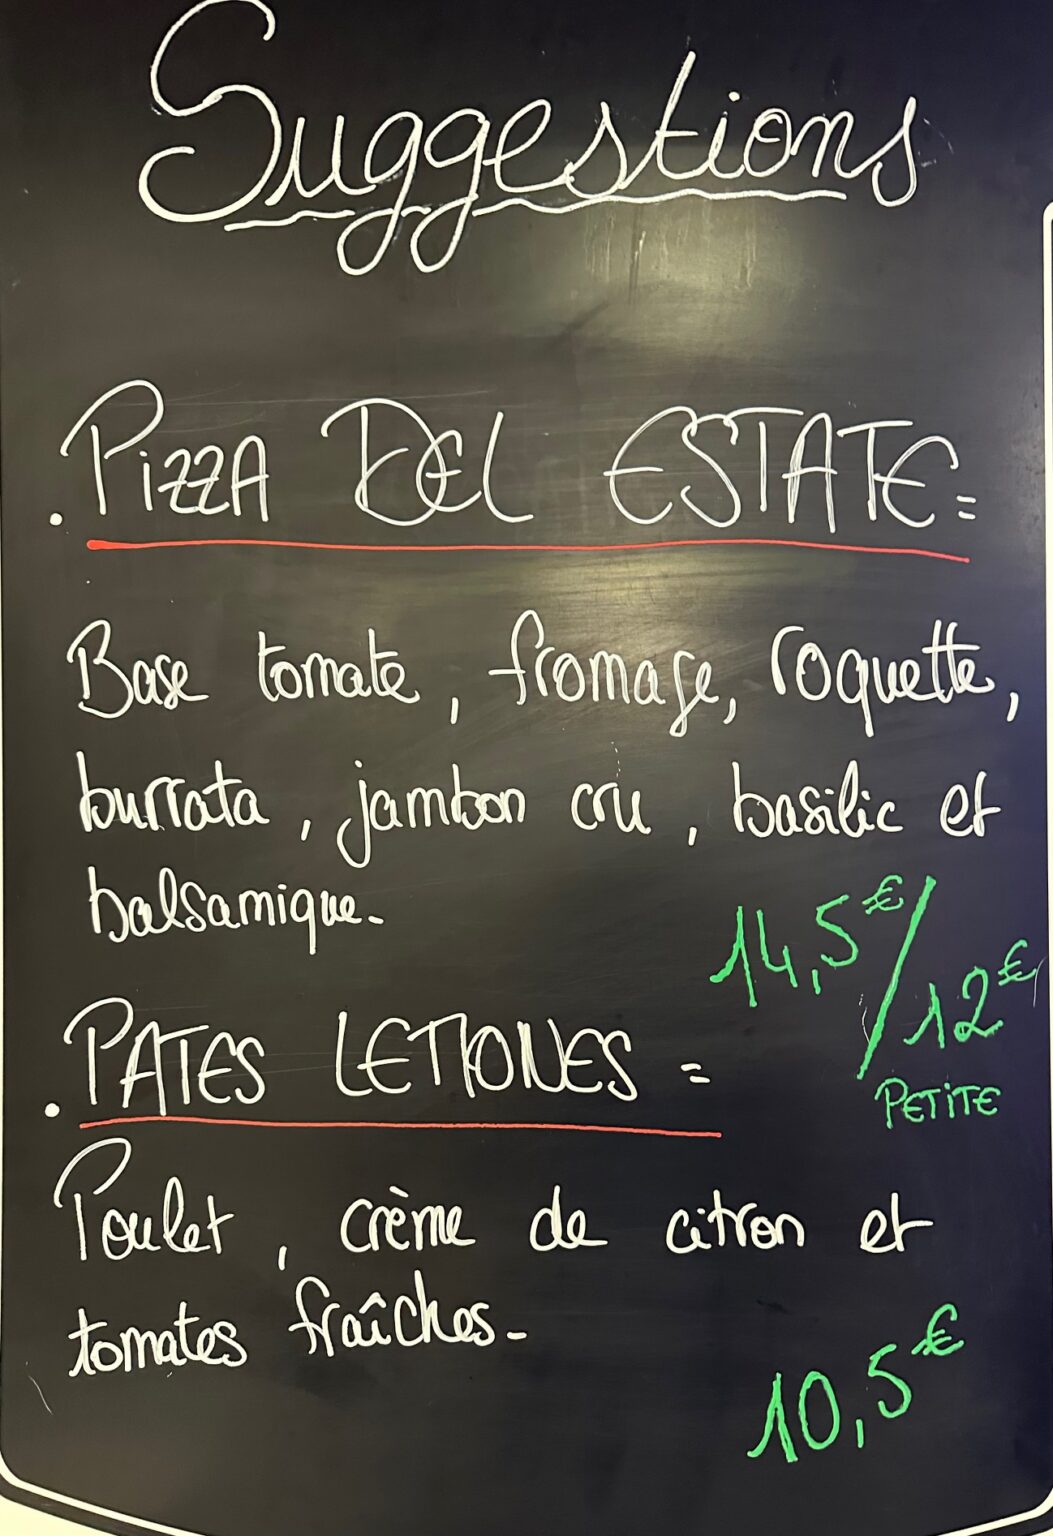 Suggestions
. PiZZA DEL ESTATE =
Base tomate, fromage, roquette,
burrata, jambon cru, basilic et
balsamique.
14,5€/12€
PETiTE
. PATES LETIONES =
Poulet, crème de citron et
tomates fraîches.
10,5€